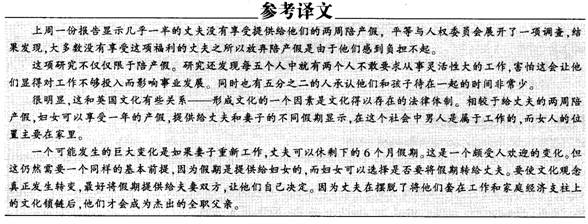 参考译文
上周一份报告显示几乎一半的丈夫没有享受提供给他们的两周陪产假，平等与人权委员会展开了一项调查，结
果发现，大多数没有享受这项福利的丈夫之所以放弃陪产假是由于他们感到负担不起。
这项研究不仅仅限于陪产假。研究还发现每五个人中就有两个人不敢要求从事灵活性大的工作，害怕这会让他
们显得对工作不够投入而影响事业发展。同时也有五分之二的人承认他们和孩子待在一起的时间非常少。
很明显，这和英国文化有些关系——形成文化的一个因素是文化得以存在的法律体制。相较于给丈夫的两周陪
产假，妇女可以享受一年的产假，提供给丈夫和妻子的不同假期显示，在这个社会中男人是属于工作的，而女人的位
置主要在家里。
一个可能发生的巨大变化是如果妻子重新工作，丈夫可以休剩下的6个月假期。这是一个颇受人欢迎的变化。但
这仍然需要一个同样的基本前提，因为假期是提供给妇女的，而妇女可以选择是否要将假期转给丈夫。要使文化观念
真正发生转变，最好将假期提供给夫妻双方，让他们自己决定。因为丈夫在摆脱了将他们套在工作和家庭经济支柱上
的文化锁链后，他们才会成为杰出的全职父亲。